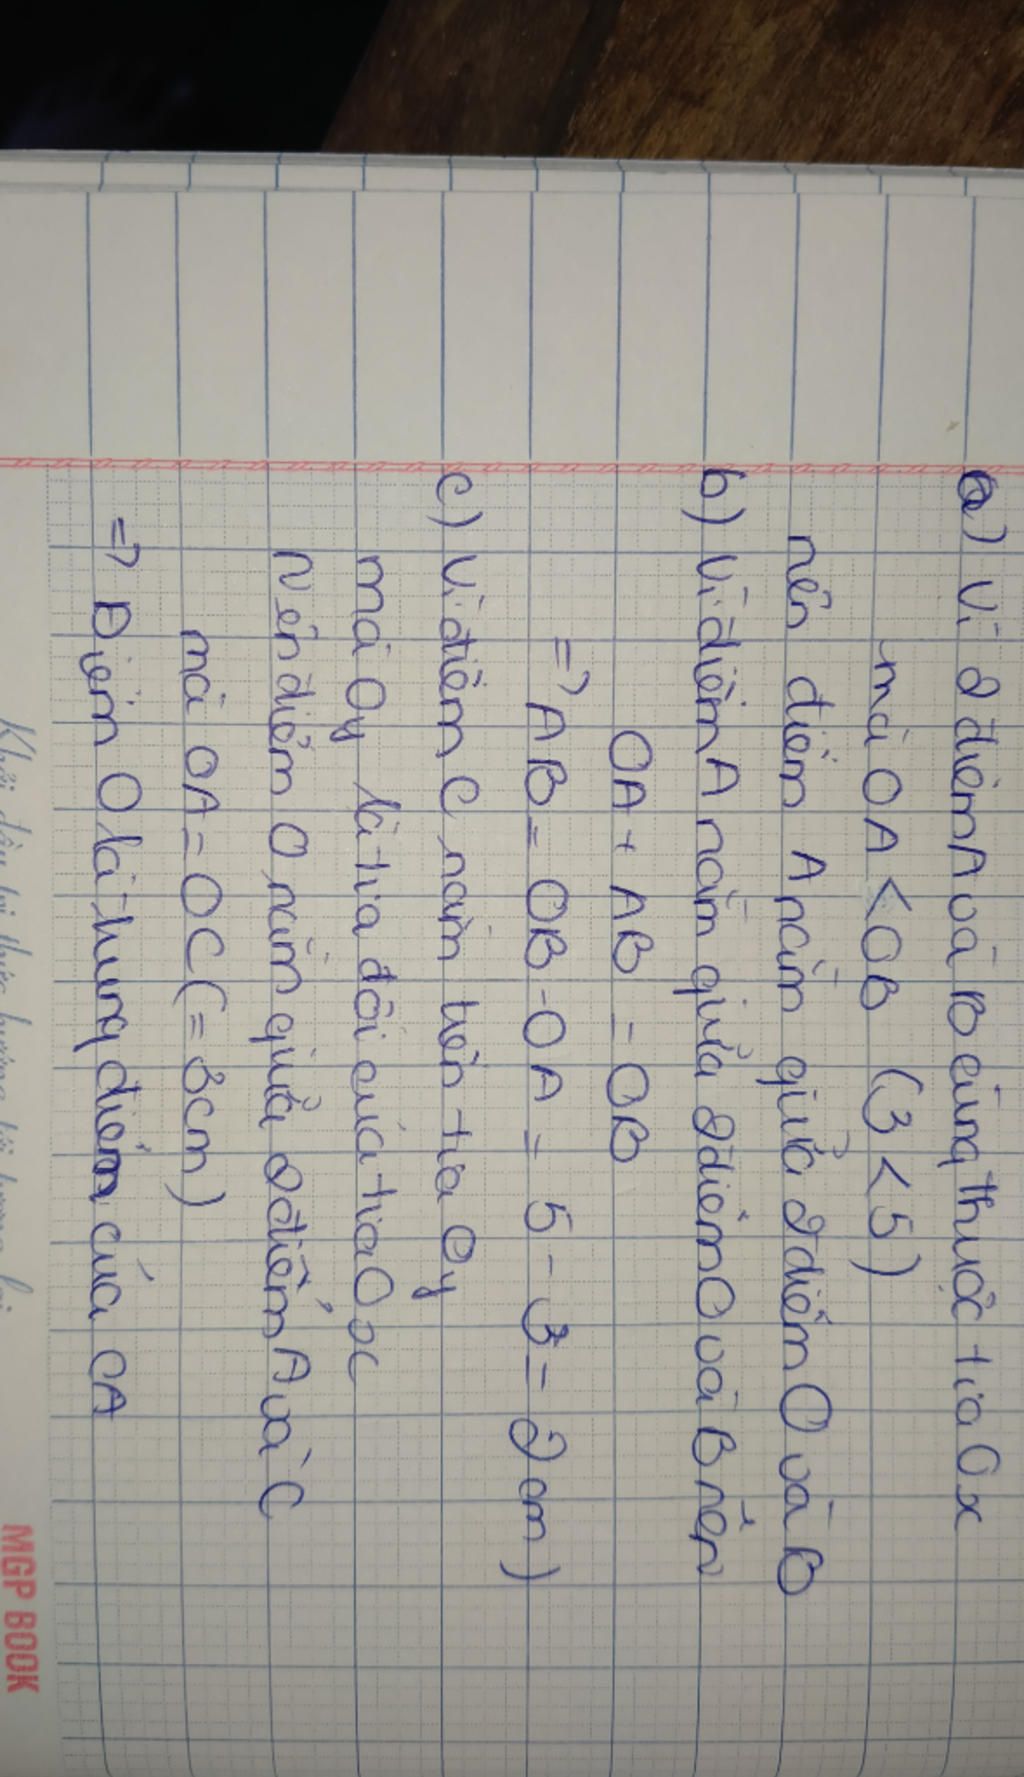 a) Vì 2 điểm A và B cùng thuộc tia Ox
mà OA < OB (3 < 5)
nên điểm A nằm giữa 2 điểm O và B
b) Vì điểm A nằm giữa 2 điểm O và B nên
OA + AB = OB
=> AB = OB - OA = 5 - 3 = 2 cm)
c) Vì điểm C nằm trên tia Oy
mà Oy là tia đối của tia Ox
Nên điểm O nằm giữa 2 điểm A và C
mà OA = OC (= 3cm)
=> Điểm O là trung điểm của CA
MGP BOOK